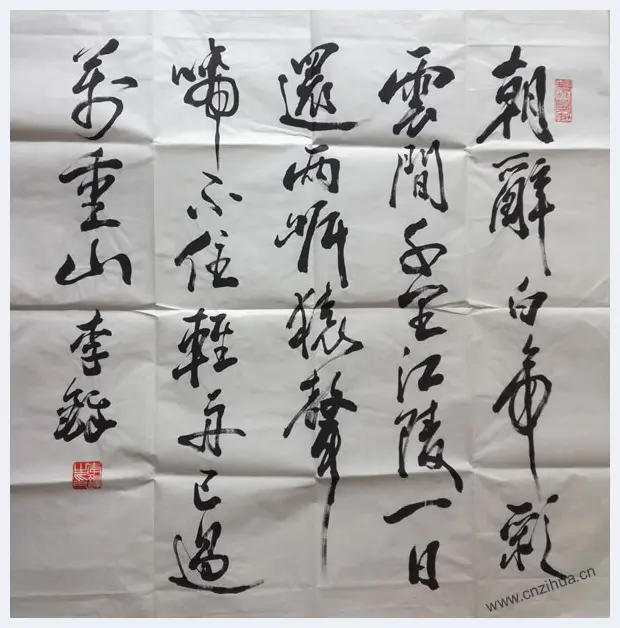 朝辭白帝彩
雲間千里江陵一日
還兩岸猿聲
啼不住輕舟已過
萬重山
李
www.cnzihua.cn